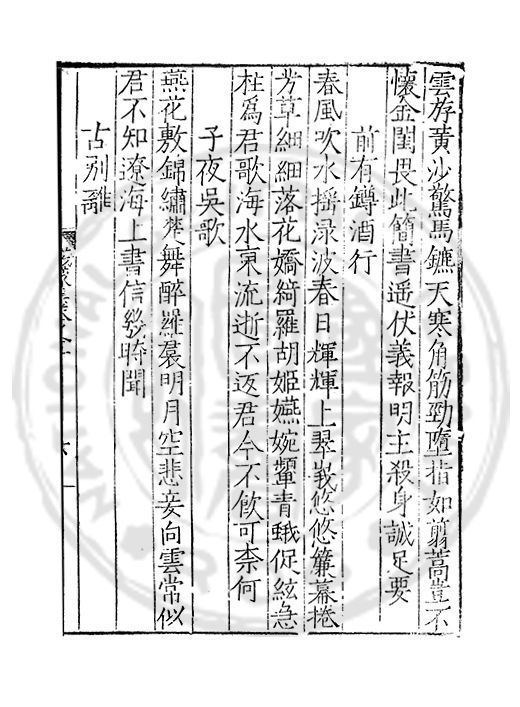 雲存黄沙驚馬鑣天寒角筋勁墮指如翦蒿豈不
懷金閨畏此簡書遥伏義報明主殺身誠足要
前有罇酒行
春風吹水摇渌波春日輝輝上翠峩悠悠簾幕捲
芳草細細落花嬌綺羅胡姬嬿婉顰青蛾促絃急
柱爲君歌海水東流逝不返君今不飲可柰何
子夜吳歌
燕花敷錦繡楚舞醉羅裠明月空悲妾向雲常似
君不知遼海上書信幾時聞
古别離